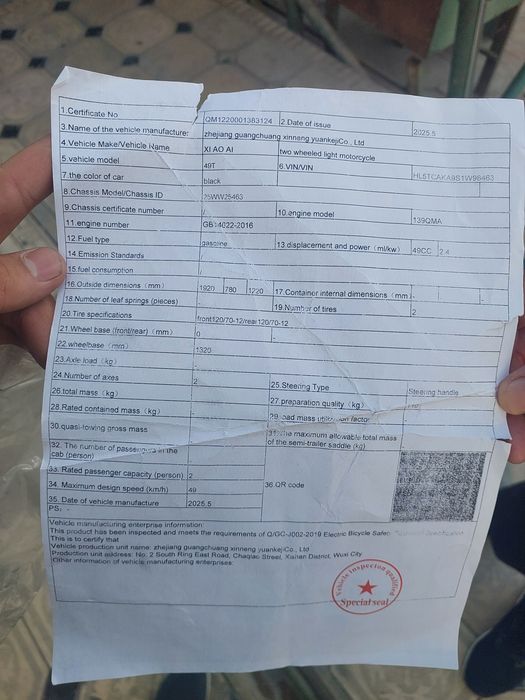 1.Certificate No QM1220001383124 2 Date of issue 2025.5
3.Name of the vehicle manufacturer zhejiang guangchuang xinnang yuankejiCo., Ltd
4.Vehicle Make/Vehicle Name XI AO AI two wheeled light motorcycle
5.vehicle model 49T 6.VIN/VIN
7.the color of car black
8.Chassis Model/Chassis ID 25WW25463
9.Chassis certificate number / 10.engine model 139QMA
11.engine number GB14022-2016
12.Fuel type gasoline 13.displacement and power (ml/kw) 49CC 2.4
14.Emission Standards /
15.fuel consumption /
16.Outside dimensions (mm) 1920 780 1220 17.Container internal dimensions (mm) - - -
18.Number of leaf springs (pieces) - 19.Number of tires 2
20.Tire specifications front120/70-12/rear120/70-12
21.Wheel base (front/rear) (mm) 0 -
22.wheelbase (mm) 1320
23.Axle load (kg) -
24.Number of axes 2 25.Steering Type Steering handle
26.total mass (kg) - 27.preparation quality (kg)
28.Rated contained mass (kg) - 29.load mass utilization factor
30.quasi-towing gross mass 31.The maximum allowable total mass of the semi-trailer saddle (kg)
32. The number of passengers in the cab (person)
33. Rated passenger capacity (person) 2
34. Maximum design speed (km/h) 49 36.QR code
35. Date of vehicle manufacture 2025.5
PS: -
Vehicle manufacturing enterprise information
This product has been inspected and meets the requirements of Q/GC-J002-2019 Electric Bicycle Safety Technical Specification
This is to certify that
Vehicle production unit name: zhejiang guangchuang xinneng yuankejiCo., Ltd
Production unit address: No. 2 South Ring East Road, Chaqiao Street, Xishan District, Wuxi City
Other information of vehicle manufacturing enterprises:
Vehicle Inspection qualified
Special seal